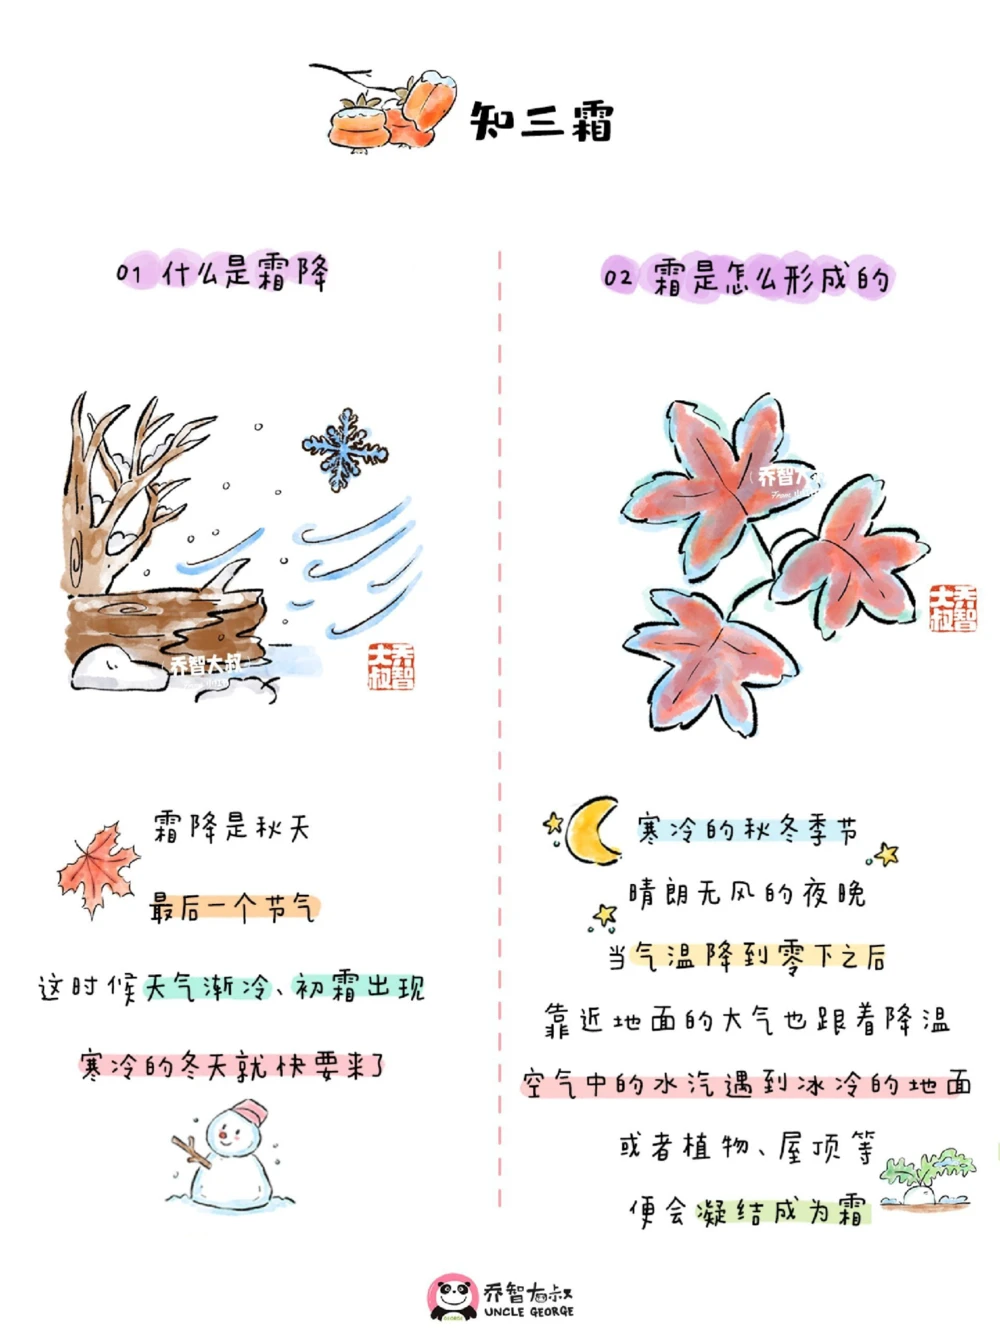 知三霜
01 什么是霜降
乔智大叔
乔智大叔
霜降是秋天
最后一个节气
这时候天气渐冷、初霜出现
寒冷的冬天就快要来了
02 霜是怎么形成的
乔智大叔
乔智大叔
寒冷的秋冬季节
晴朗无风的夜晚
当气温降到零下之后
靠近地面的大气也跟着降温
空气中的水汽遇到冰冷的地面
或者植物、屋顶等
便会凝结成为霜
乔智大叔
UNCLE GEORGE
GEORGE